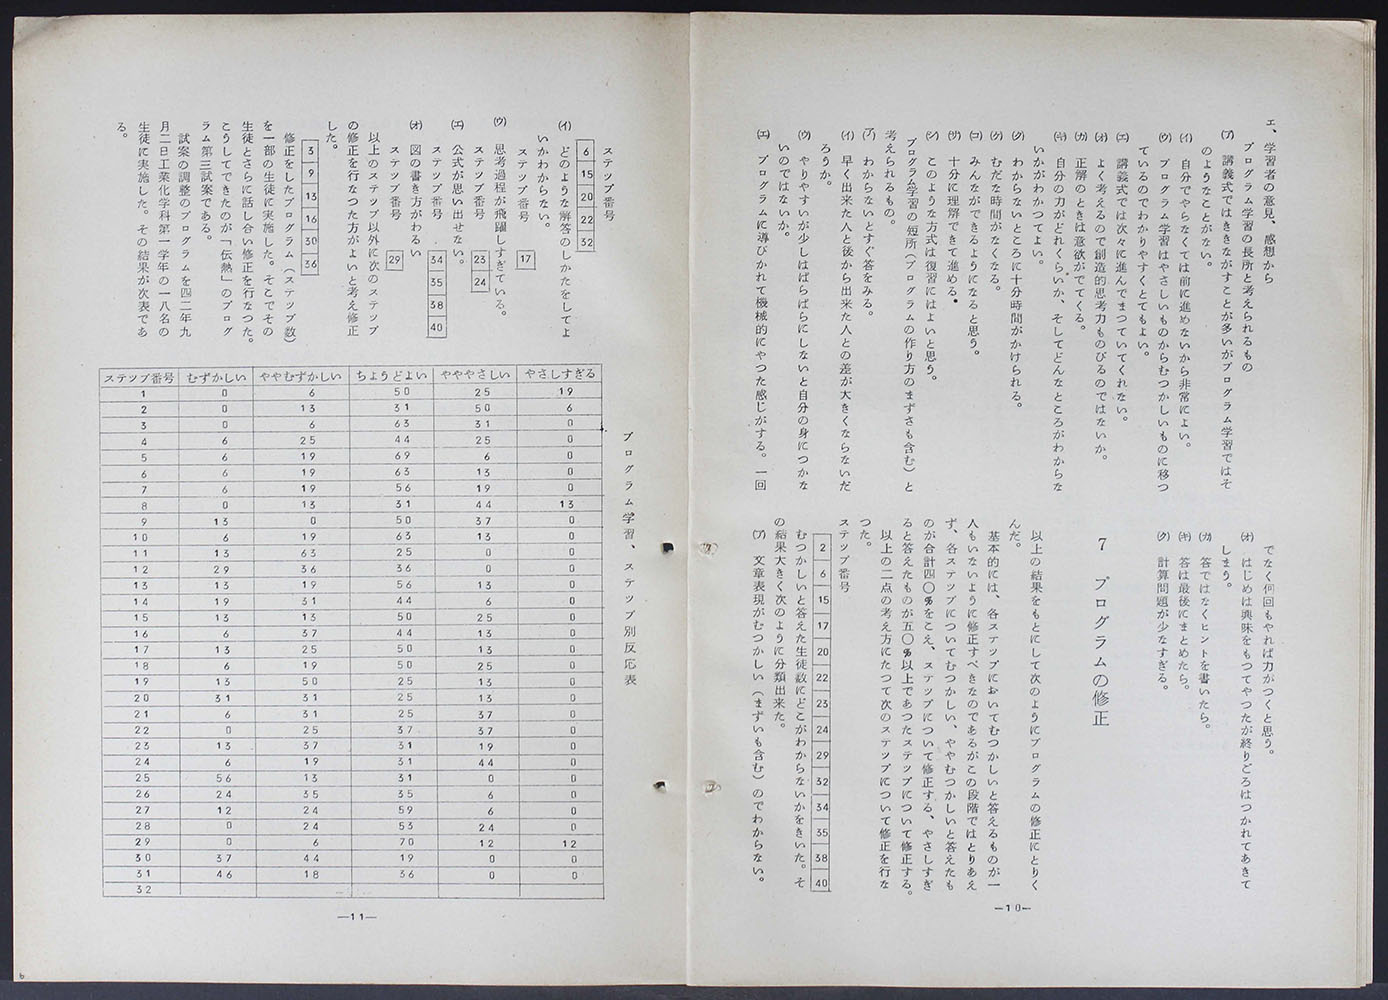 エ、学習者の意見、感想から
プログラム学習の長所と考えられるもの
(ア) 講義式ではききながすことが多いがプログラム学習ではそ
のようなことがない。
(イ) 自分でやらなくては前に進めないから非常によい。
(ウ) プログラム学習はやさしいものからむつかしいものに移つ
ているのでわかりやすくとてもよい。
(エ) 講義式では次々に進んでまつていてくれない。
(オ) よく考えるので創造的思考力ものびるのではないか。
(カ) 正解のときは意欲がでてくる。
(キ) 自分の力がどれくらいか、そしてどんなところがわからな
いかがわかつてよい。
(ク) わからないところに十分時間がかけられる。
(ケ) むだな時間がなくなる。
(コ) みんなができるようになると思う。
(サ) 十分に理解できて進める。
(シ) このような方式は復習にはよいと思う。
プログラム学習の短所(プログラムの作り方のまずさも含む)と
考えられるもの。
(ア) わからないとすぐ答をみる。
(イ) 早く出来た人と後から出来た人との差が大きくならないだ
ろうか。
(ウ) やりやすいが少しはばらばらにしないと自分の身につかな
いのではないか。
(エ) プログラムに導びかれて機械的にやつた感じがする。一回
でなく何回もやれば力がつくと思う。
(オ) はじめは興味をもつてやつたが終りごろはつかれてあきて
しまう。
(カ) 答ではなくヒントを書いたら。
(キ) 答は最後にまとめたら。
(ク) 計算問題が少なすぎる。
7 プログラムの修正
以上の結果をもとにして次のようにプログラムの修正にとりく
んだ。
基本的には、各ステップにおいてむつかしいと答えるものが一
人もいないように修正すべきなのであるがこの段階ではとりあえ
ず、各ステップについてむつかしい、ややむつかしいと答えたも
のが合計四〇%をこえ、ステップについて修正する、やさしすぎ
ると答えたものが五〇%以上であつたステップについて修正する。
以上の二点の考え方にたつて次のステップについて修正を行な
つた。
ステップ番号
2 6 15 17 20 22 23 24 29 32 34 35 38 40
むつかしいと答えた生徒数にどこがわからないかをきいた。そ
の結果大きく次のように分類出来た。
(ア) 文章表現がむつかしい(まずいも含む)のでわからない。
—10—
ステップ番号
6 15 20 22 32
(イ) どのような解答のしかたをしてよ
いかわからない。
ステップ番号 17
(ウ) 思考過程が飛躍しすぎている。
ステップ番号 23 24
(エ) 公式が思い出せない。
ステップ番号 34 35 38 40
(オ) 図の書き方がわるい
ステップ番号 29
以上のステップ以外に次のステップ
の修正を行なつた方がよいと考え修正
した。
3 9 13 16 30 36
修正をしたプログラム(ステップ数)
を一部の生徒に実施した。そこでその
生徒とさらに話し合い修正を行なつた。
こうしてできたのが「伝熱」のプログ
ラム第三試案である。
試案の調整のプログラムを四二年九
月二日工業化学科第一学年の一八名の
生徒に実施した。その結果が次表であ
る。
プログラム学習、ステップ別反応表
ステップ番号 むずかしい ややむずかしい ちょうどよい やややさしい やさしすぎる
1 0 6 50 25 19
2 0 13 31 50 6
3 0 6 63 31 0
4 6 25 44 25 0
5 6 19 69 6 0
6 6 19 63 13 0
7 6 19 56 19 0
8 0 13 31 44 13
9 13 0 50 37 0
10 6 19 63 13 0
11 13 63 25 0 0
12 29 36 36 0 0
13 13 19 56 13 0
14 19 31 44 6 0
15 13 13 50 25 0
16 6 37 44 13 0
17 13 25 50 13 0
18 6 19 50 25 0
19 13 50 25 13 0
20 31 31 25 13 0
21 6 31 25 37 0
22 0 25 37 37 0
23 13 37 31 19 0
24 6 19 31 44 0
25 56 13 31 0 0
26 24 35 35 6 0
27 12 24 59 6 0
28 0 24 53 24 0
29 0 6 70 12 12
30 37 44 19 0 0
31 46 18 36 0 0
32
—11—